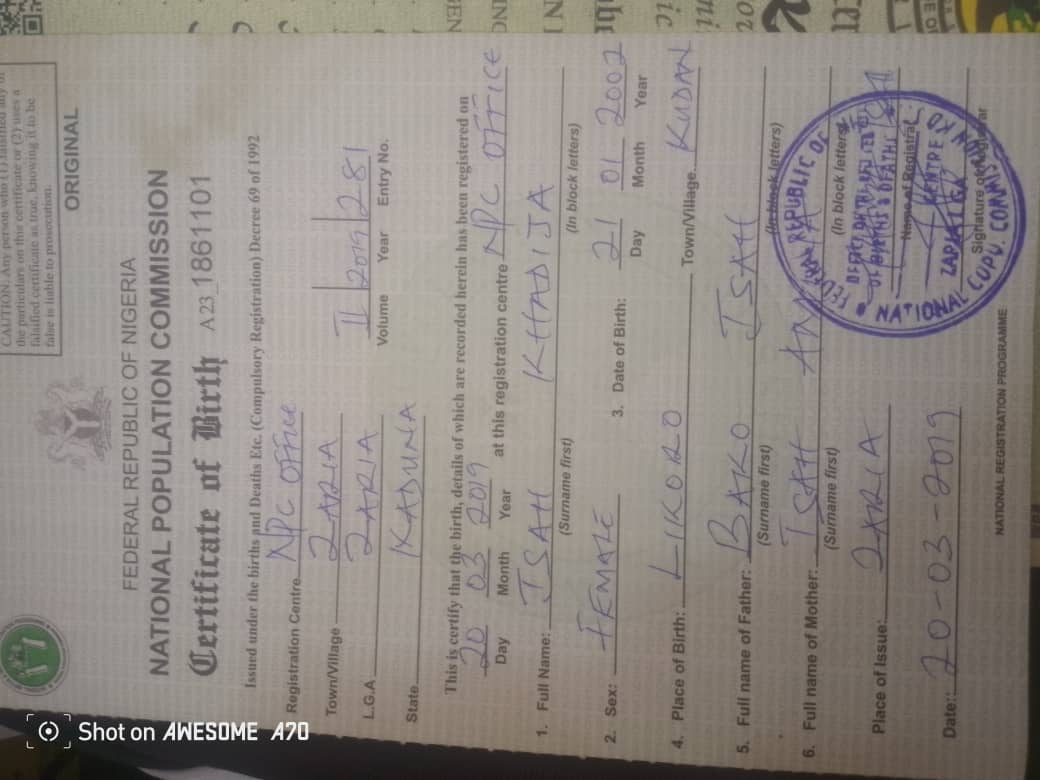 CAUTION. Any person who (1) falsified any of
the particulars on this certificate or (2) uses a
falsified certificate as true, knowing it to be
false is liable to prosecution.
ORIGINAL
FEDERAL REPUBLIC OF NIGERIA
NATIONAL POPULATION COMMISSION
Certificate of Birth A23 1861101
Issued under the births and Deaths Etc. (Compulsory Registration) Decree 69 of 1992
Registration Centre NPC OFFICE
Town/Village ZARIA
L.G.A ZARIA II 2019 281
State KADUNA Volume Year Entry No.
This is certify that the birth, details of which are recorded herein has been registered on
20 03 2019 at this registration centre NPC OFFICE
Day Month Year
1. Full Name: ISAH KHADIJA
(Surname first) (In block letters)
2. Sex: FEMALE 3. Date of Birth: 21 01 2002
Day Month Year
4. Place of Birth: LIKORO Town/Village KUDAN
5. Full name of Father: BAKO ISAH
(Surname first) (In block letters)
6. Full name of Mother: ISAH
(Surname first) (In block letters)
Place of Issue: ZARIA Name of Registrar
Date: 20-03-2019 Signature of Registrar
NATIONAL REGISTRATION PROGRAMME
FEDERAL REPUBLIC OF
NATIONAL
Shot on AWESOME A70